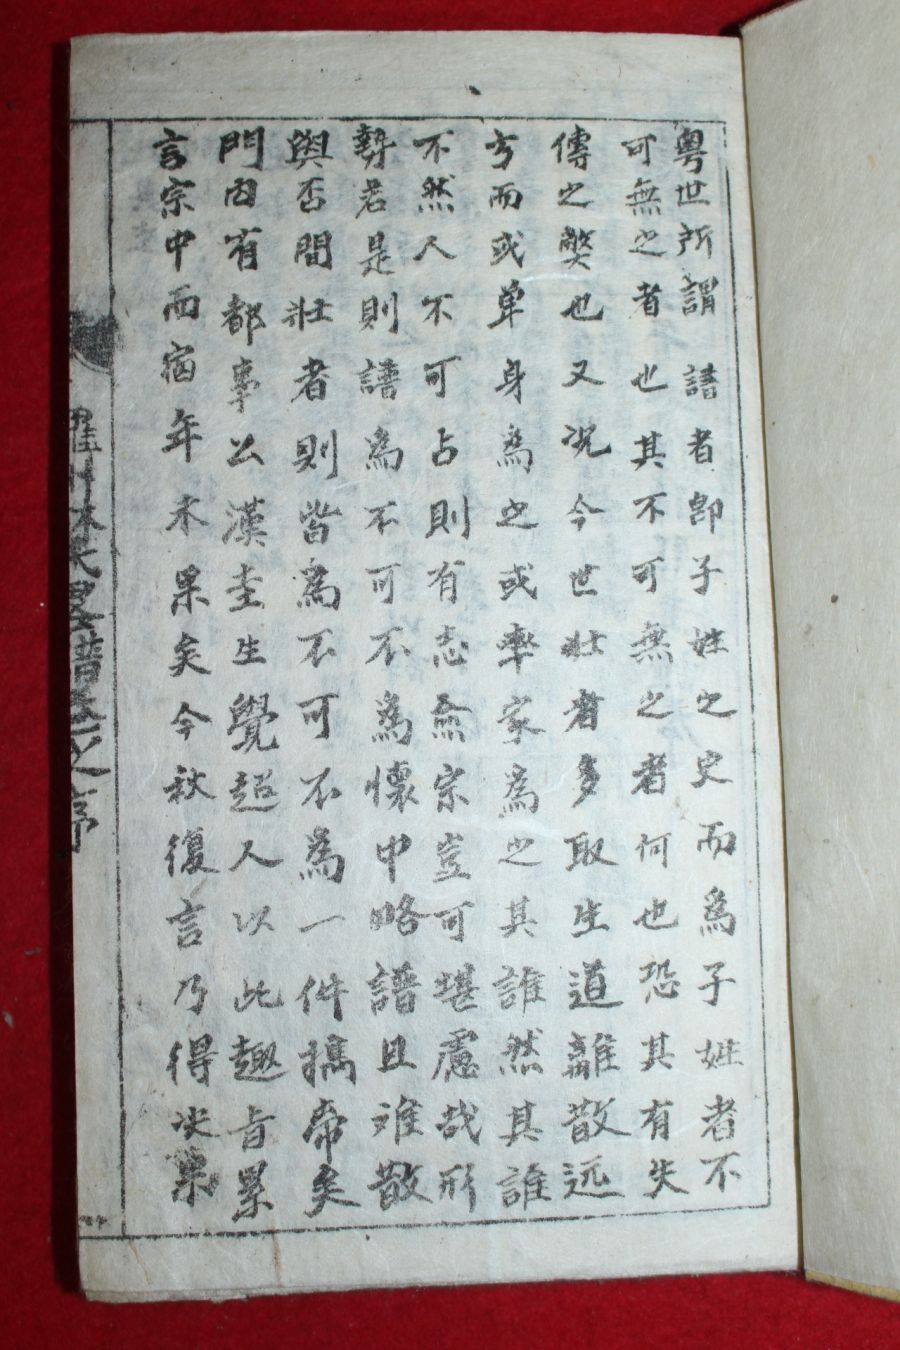 粤世所謂 譜者卽子姓之史而爲子姓者不
可無之者也其不可無之者何也恐其有失
傳之獘也又况今世壯者多取生道離散远
方而或单身爲之或率家爲之其誰然其誰
不然人不可占則有志爲宗豈可堪慮哉形
勢若是則譜爲不可不爲懷中略譜且难散
與否間壯者則皆爲不可不爲一件擕帶矣
門內有都事公漢圭生覺超人以此趣旨累
言宗中而宿年未果矣今秋復言乃得决果
羅州林氏畧譜之序